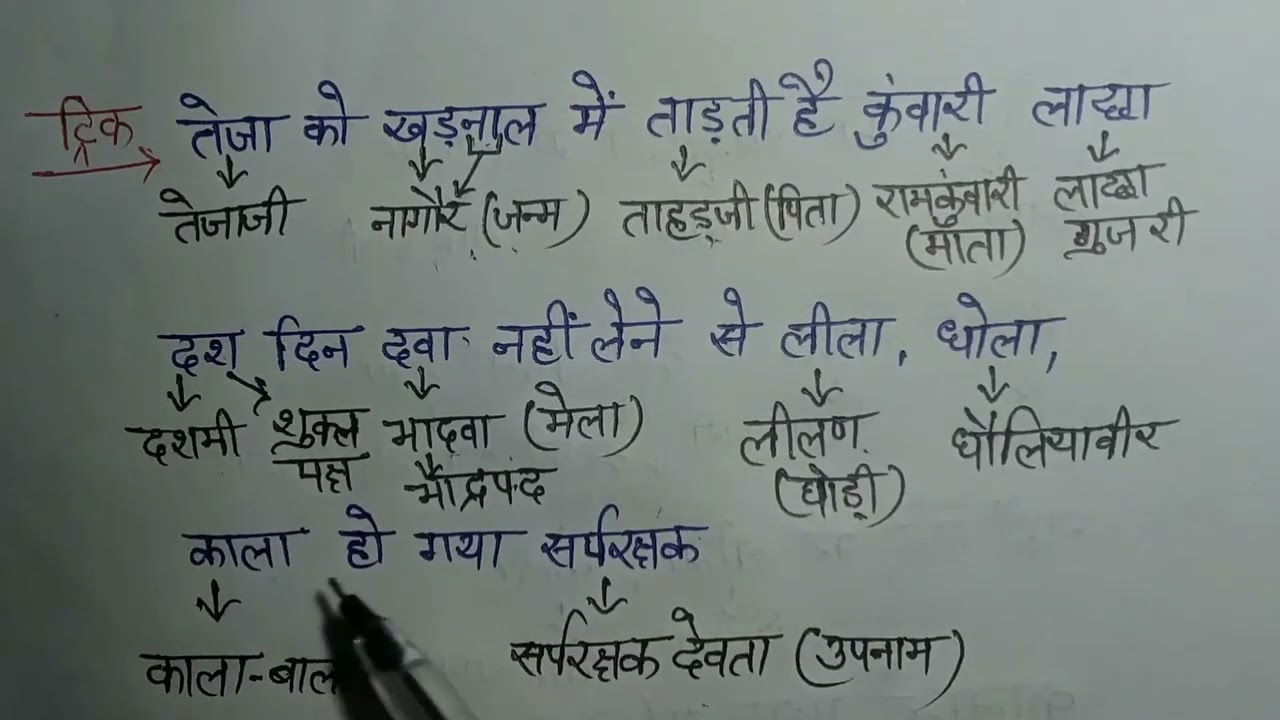 ट्रिक तेजा को खड़नाल में ताड़ती है कुंवारी लाछा
तेजाजी नागौर (जन्म) ताहड़जी (पिता) रामकुंवारी लाछा
(माता) गुजरी
दश दिन दवा नहीं लेने से लीला, धोला,
दशमी शुक्ल भादवा (मेला) लीलण धौलियावीर
पक्ष भाद्रपद (घोड़ी)
काला हो गया सर्परक्षक
काला-बाल सर्परक्षक देवता (उपनाम)